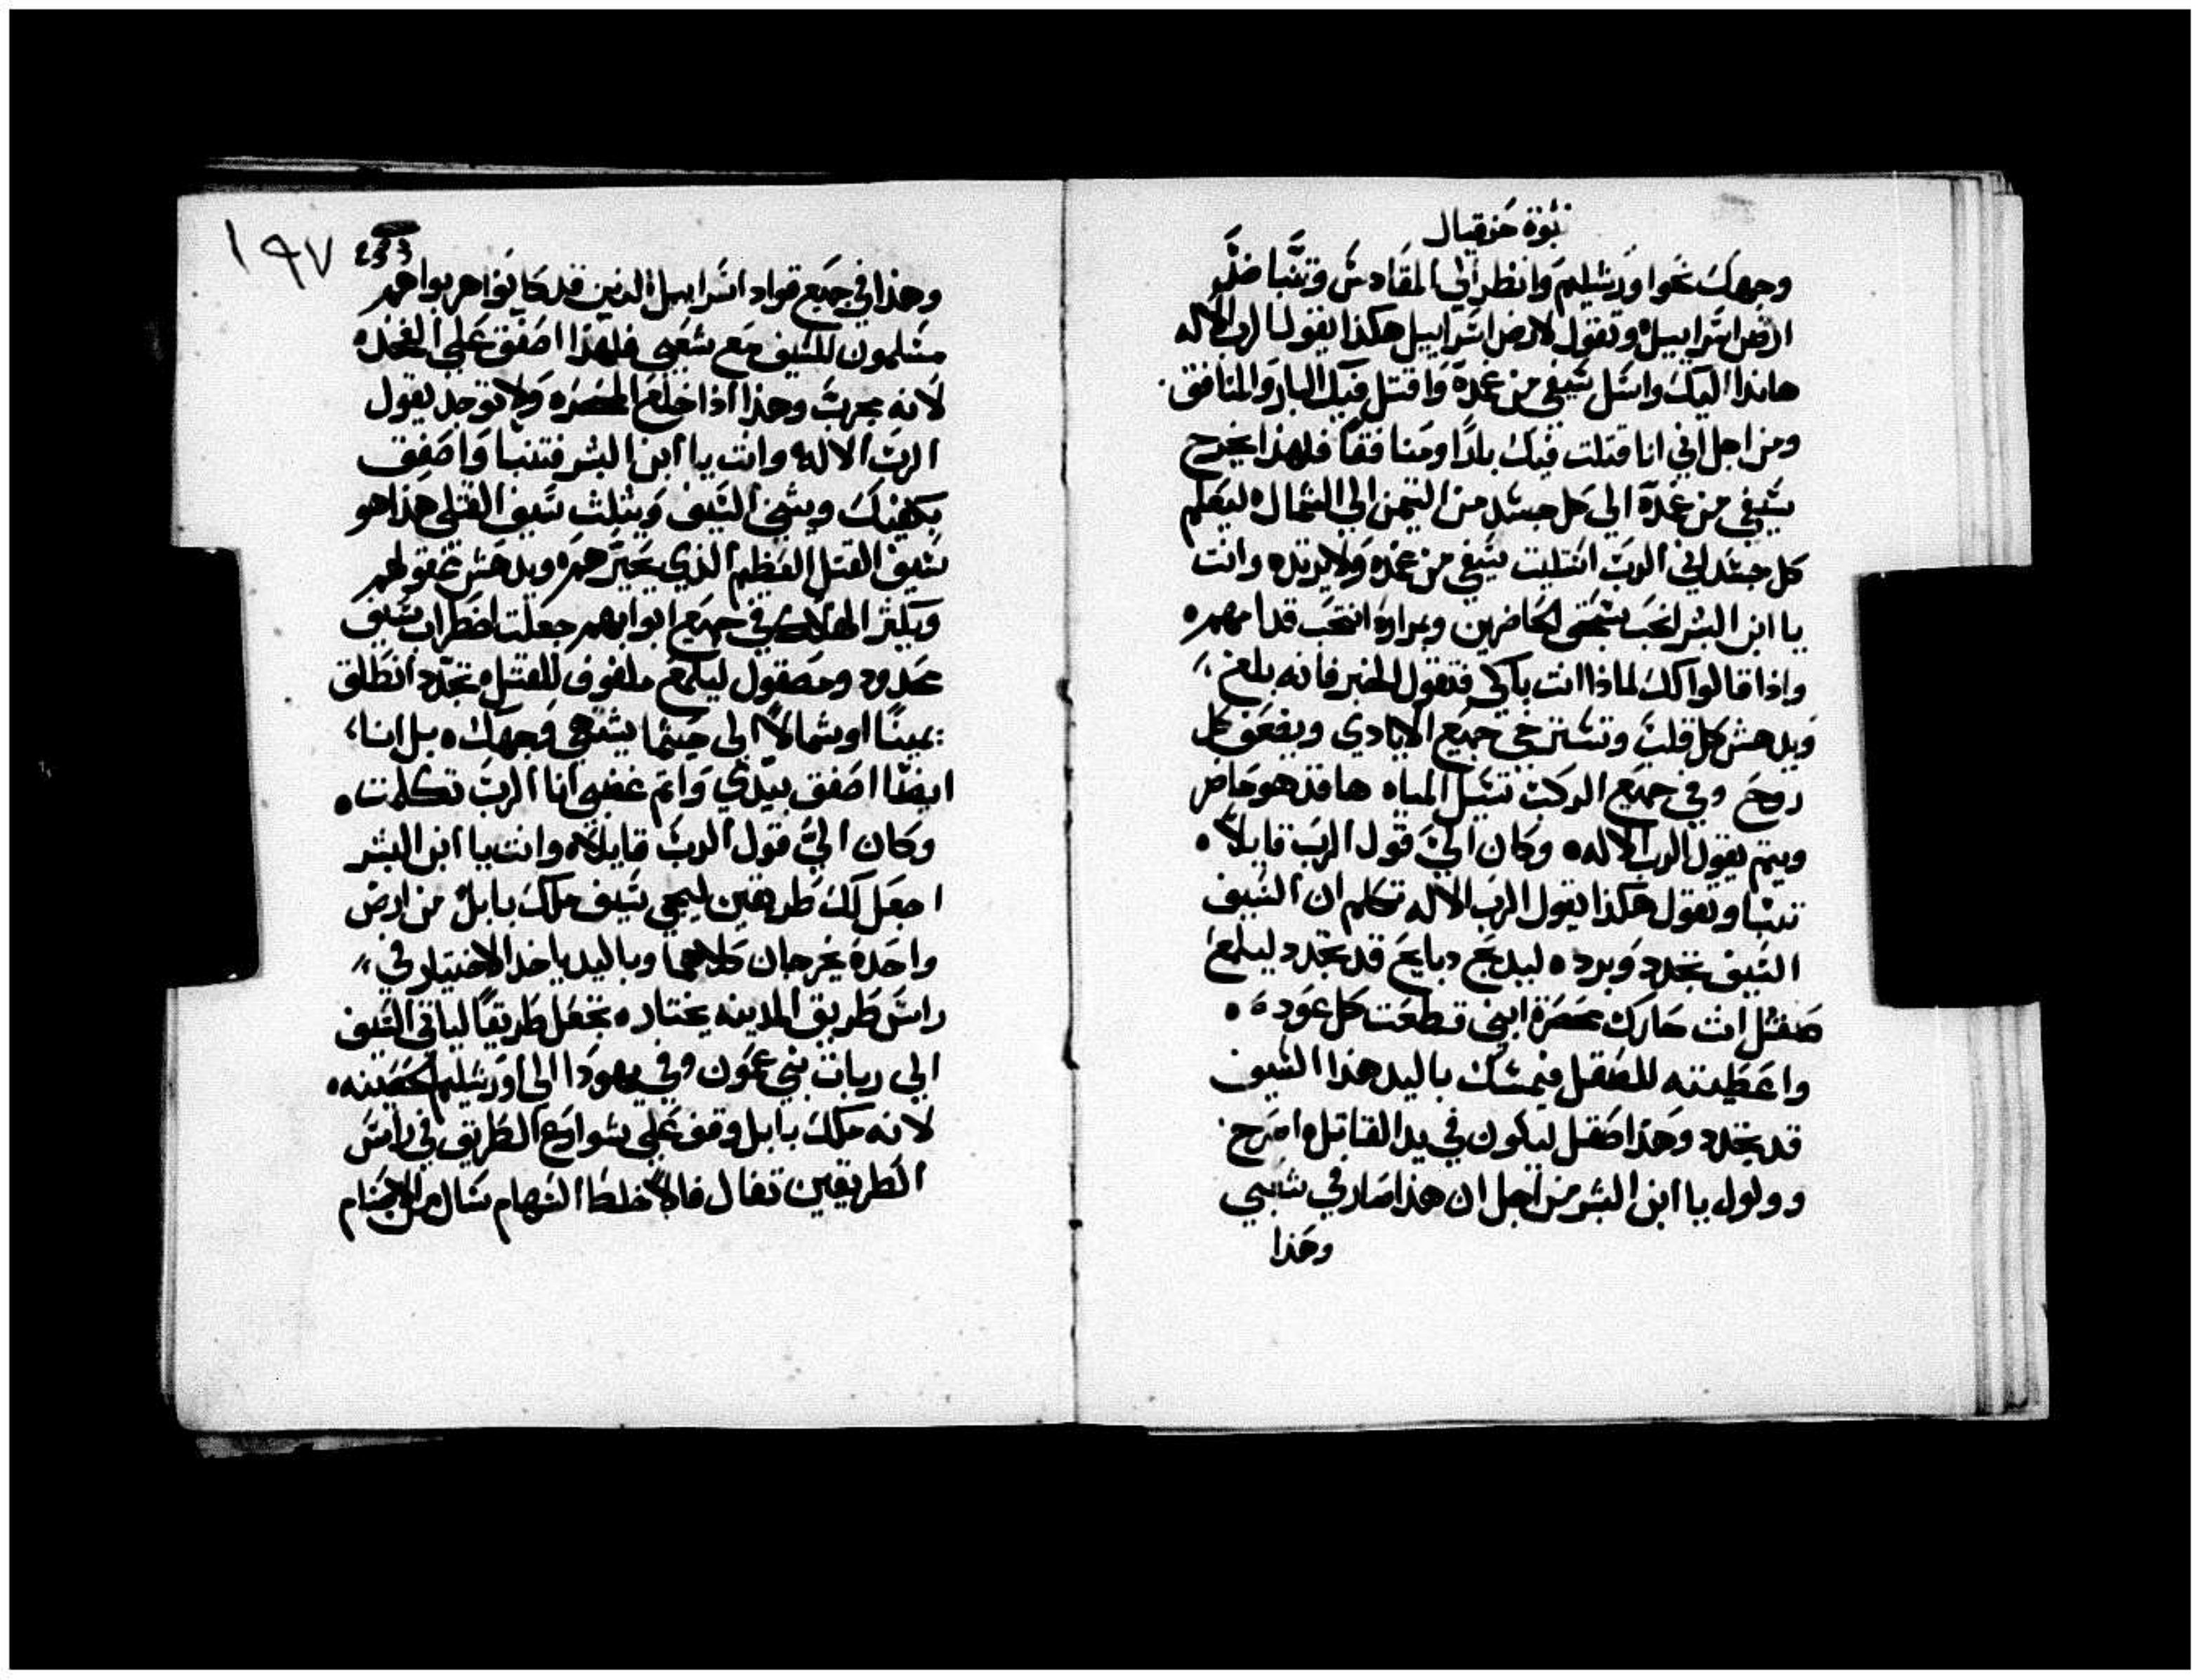 نبوة حزقيال
وجهك نحو اورشليم وانظر الي المقادس وتنبا ضد
ارض اسراييل وتقول لارض اسراييل هكذا يقول الرب الاله
هانذا اليك واستل سيفي من غمده واقتل فيك البار والمنافق
ومن اجل اني انا قتلت فيك بارًا ومنافقًا فلهذا يخرج
سيفي من غمده الي كل جسد من التيمن الي الشمال ليعلم
كل جسد اني الرب استليت سيفي من غمده ولا يرتد وانت
يا ابن البشر انتحب بسحق الخاضرين وبمراره انتحب قدامهم
واذا قالوا لك لماذا انت باكي فتقول للخبر فانه بلغ
ويدهش كل قلب وتسترخي جميع الايادي ويضعف كل
روح وفي جميع الركب تسيل المياه ها قد هو حاضر
ويتم يقول الرب الاله وكان اليّ قول الرب قايلاً
تنبا وتقول هكذا يقول الرب الاله تكلم ان السيف
السيف تحدد وبرد ليذبح دبايح قد تحدد ليلمع
صقل انت حارك عصرة ابني قطعت كل عود
واعطيته للصقل فيمسك باليد هذا السيف
قد تحدد وهذا صقل ليكون في يد القاتل اصرخ
وولول يا ابن البشر من اجل ان هذا صار في شعبي
وهذا
١٩٧
وهذا في جميع قواد اسراييل الذين قد كانوا هربوا هم
مسلمون للسيف مع شعبي فلهذا اصفق علي الفخذ
لانه مجرب وهذا اذا خلع المخصره ولا توجد يقول
الرب الاله وانت يا ابن البشر فتنبا واصفق
بكفيك ويثني السيف ويثلث سيف القتلي هذا هو
سيف القتل العظيم الذي يحيرهم ويدهش عقولهم
ويكثر الهلاك في جميع ابوابهم جعلت اضطراب سيف
محدود ومصقول ليلمع ملفوف للقتل تحدد انطلق
يمينًا او شمالاً الي حيثما يشتهي وجهك بل انا
ايضًا اصفق بيدي واتم غضبي انا الرب تكلمت
وكان اليّ قول الرب قايلاً وانت يا ابن البشر
اجعل لك طريقين ليجي سيف ملك بابل من ارض
واحده يخرجان كلاهما وباليد ياخذ الاختيار في
راس طريق المدينه يختار تجعل طريقًا لياتي السيف
الي ربات بني عمون وفي يهودا الي اورشليم الحصينه
لانه ملك بابل وقف علي شوارع الطريق في راس
الطريقين تفال فالاً خلط السهام سال من الاصنام